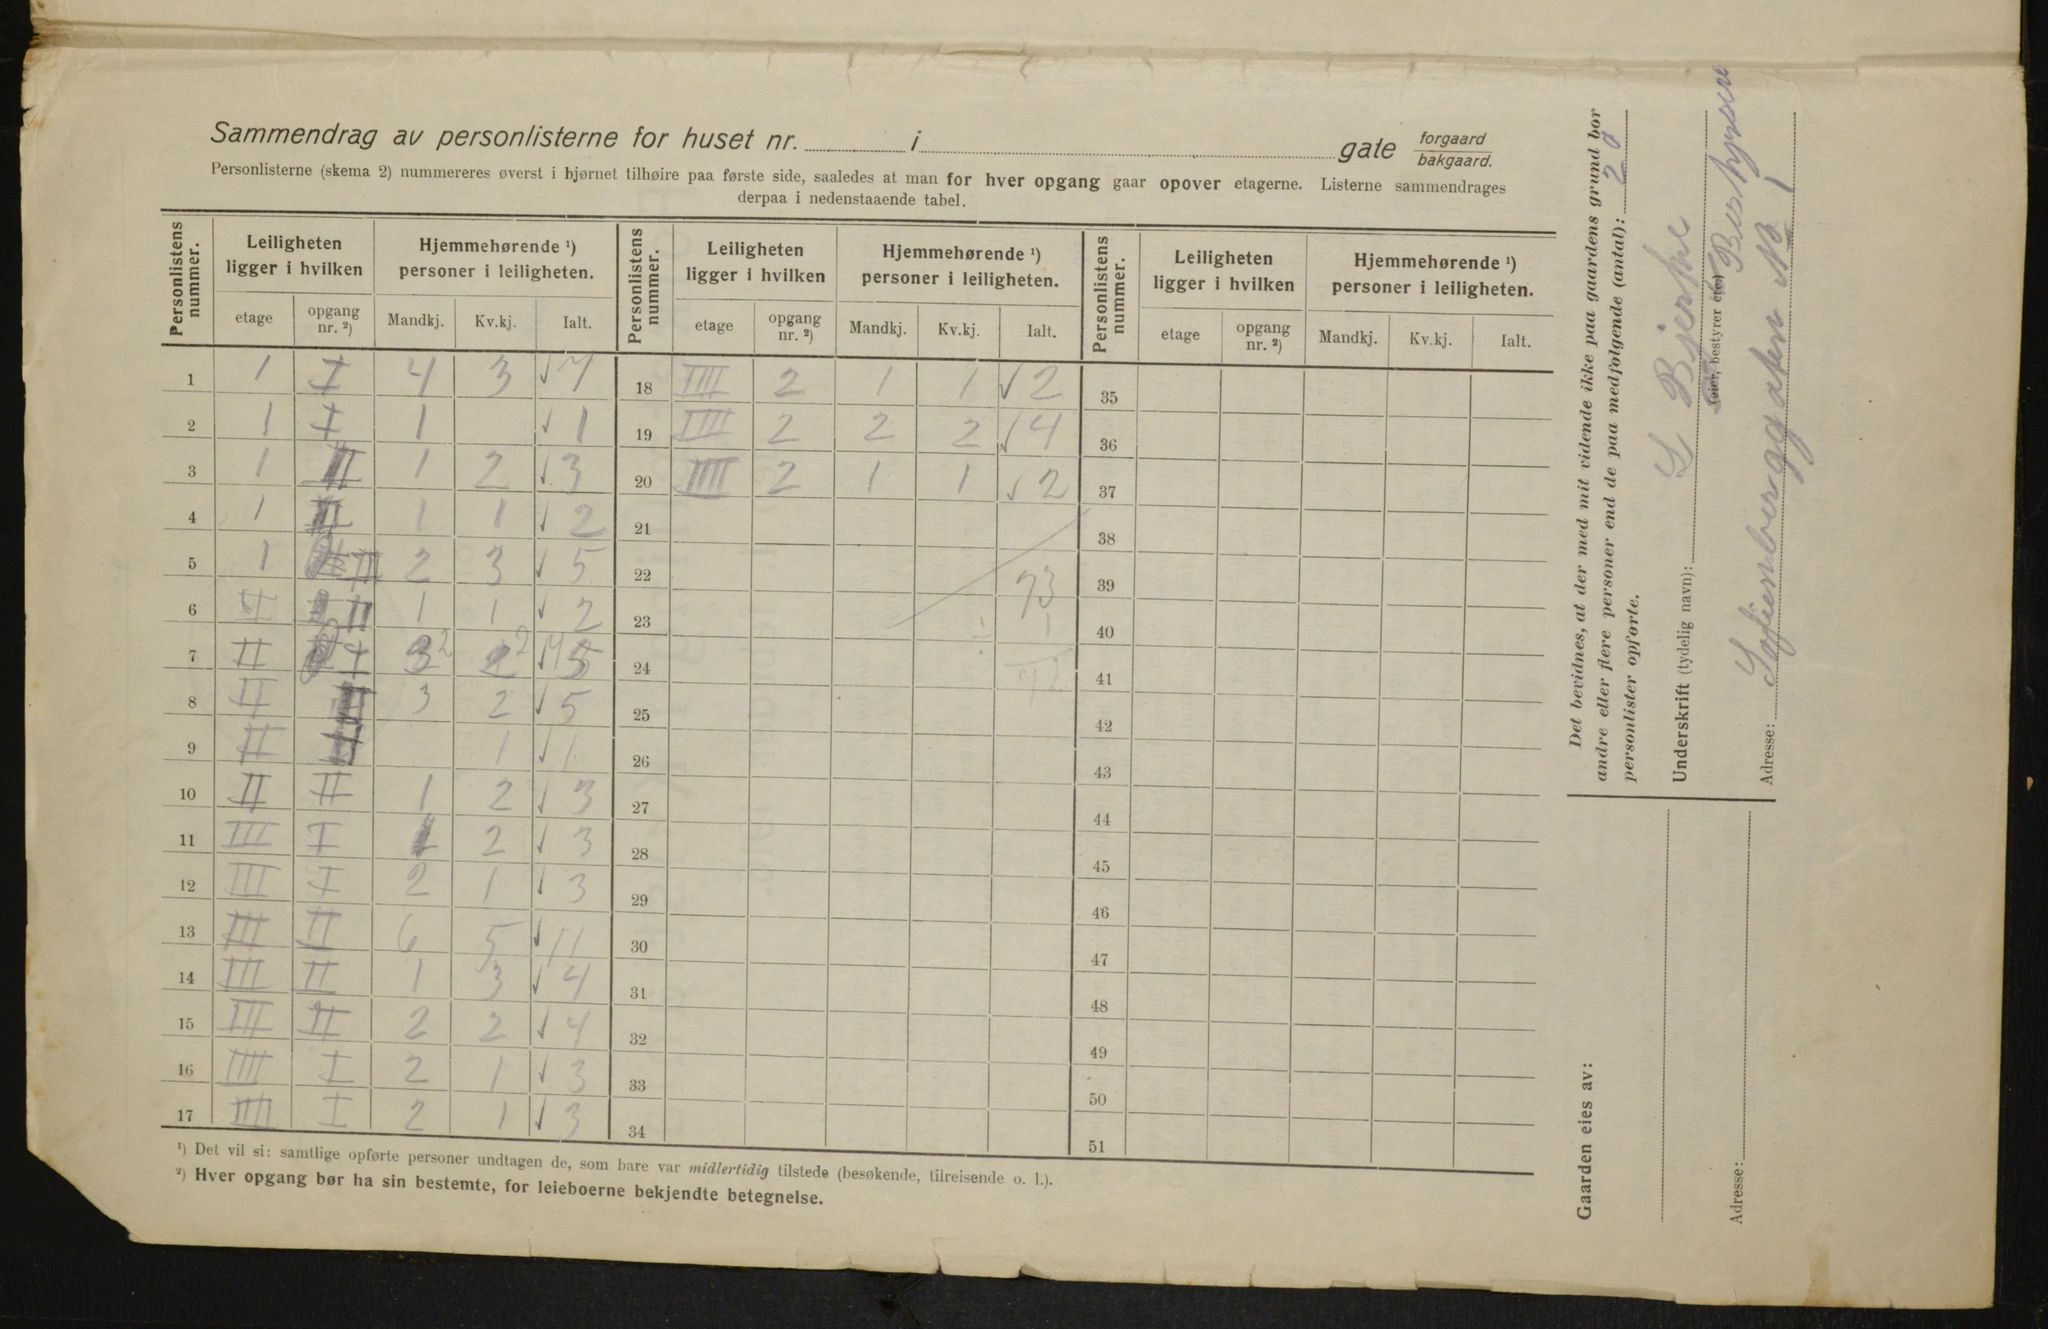 Sammendrag av personlisterne for huset nr. i gate forgaard bakgaard.
Personlisterne (skema 2) nummereres øverst i hjørnet tilhøire paa første side, saaledes at man for hver opgang gaar opover etagerne. Listerne sammendrages
derpaa i nedenstaaende tabel.
Personlistens nummer. Leiligheten ligger i hvilken Hjemmehørende ¹) personer i leiligheten. Personlistens nummer. Leiligheten ligger i hvilken Hjemmehørende ¹) personer i leiligheten. Personlistens nummer. Leiligheten ligger i hvilken Hjemmehørende ¹) personer i leiligheten.
etage opgang nr. ²) Mandkj. Kv.kj. Ialt. etage opgang nr. ²) Mandkj. Kv.kj. Ialt. etage opgang nr. ²) Mandkj. Kv.kj. Ialt.
1 1 I 4 3 √ 7 18 IIII 2 1 1 √ 2 35
2 1 I 1 √ 1 19 IIII 2 2 2 √ 4 36
3 1 II 1 2 √ 3 20 IIII 2 1 1 √ 2 37
4 1 II 1 1 √ 2 21 38
5 1 II 2 3 √ 5 22 73 39
6 II II 1 1 √ 2 23 ÷ 1 40
7 II I 3 2 2 2 √ 4 5 24 72 41
8 II 3 2 √ 5 25 42
9 II 1 √ 1 26 43
10 II II 1 2 √ 3 27 44
11 III I 1 2 √ 3 28 45
12 III I 2 1 √ 3 29 46
13 III II 6 5 √ 11 30 47
14 III II 1 3 √ 4 31 48
15 III II 2 2 √ 4 32 49
16 IIII I 2 1 √ 3 33 50
17 IIII I 2 1 √ 3 34 51
¹) Det vil si: samtlige opførte personer undtagen de, som bare var midlertidig tilstede (besøkende, tilreisende o. l.).
²) Hver opgang bør ha sin bestemte, for leieboerne bekjendte betegnelse.
Det bevidnes, at der med mit vidende ikke paa gaardens grund bor
andre eller flere personer end de paa medfølgende (antal): 20
personlister opførte.
Underskrift (tydelig navn): L Bjerke
(eier, bestyrer etc.)
Adresse: Sofienberggaten No 1
Gaarden eies av:
Adresse: